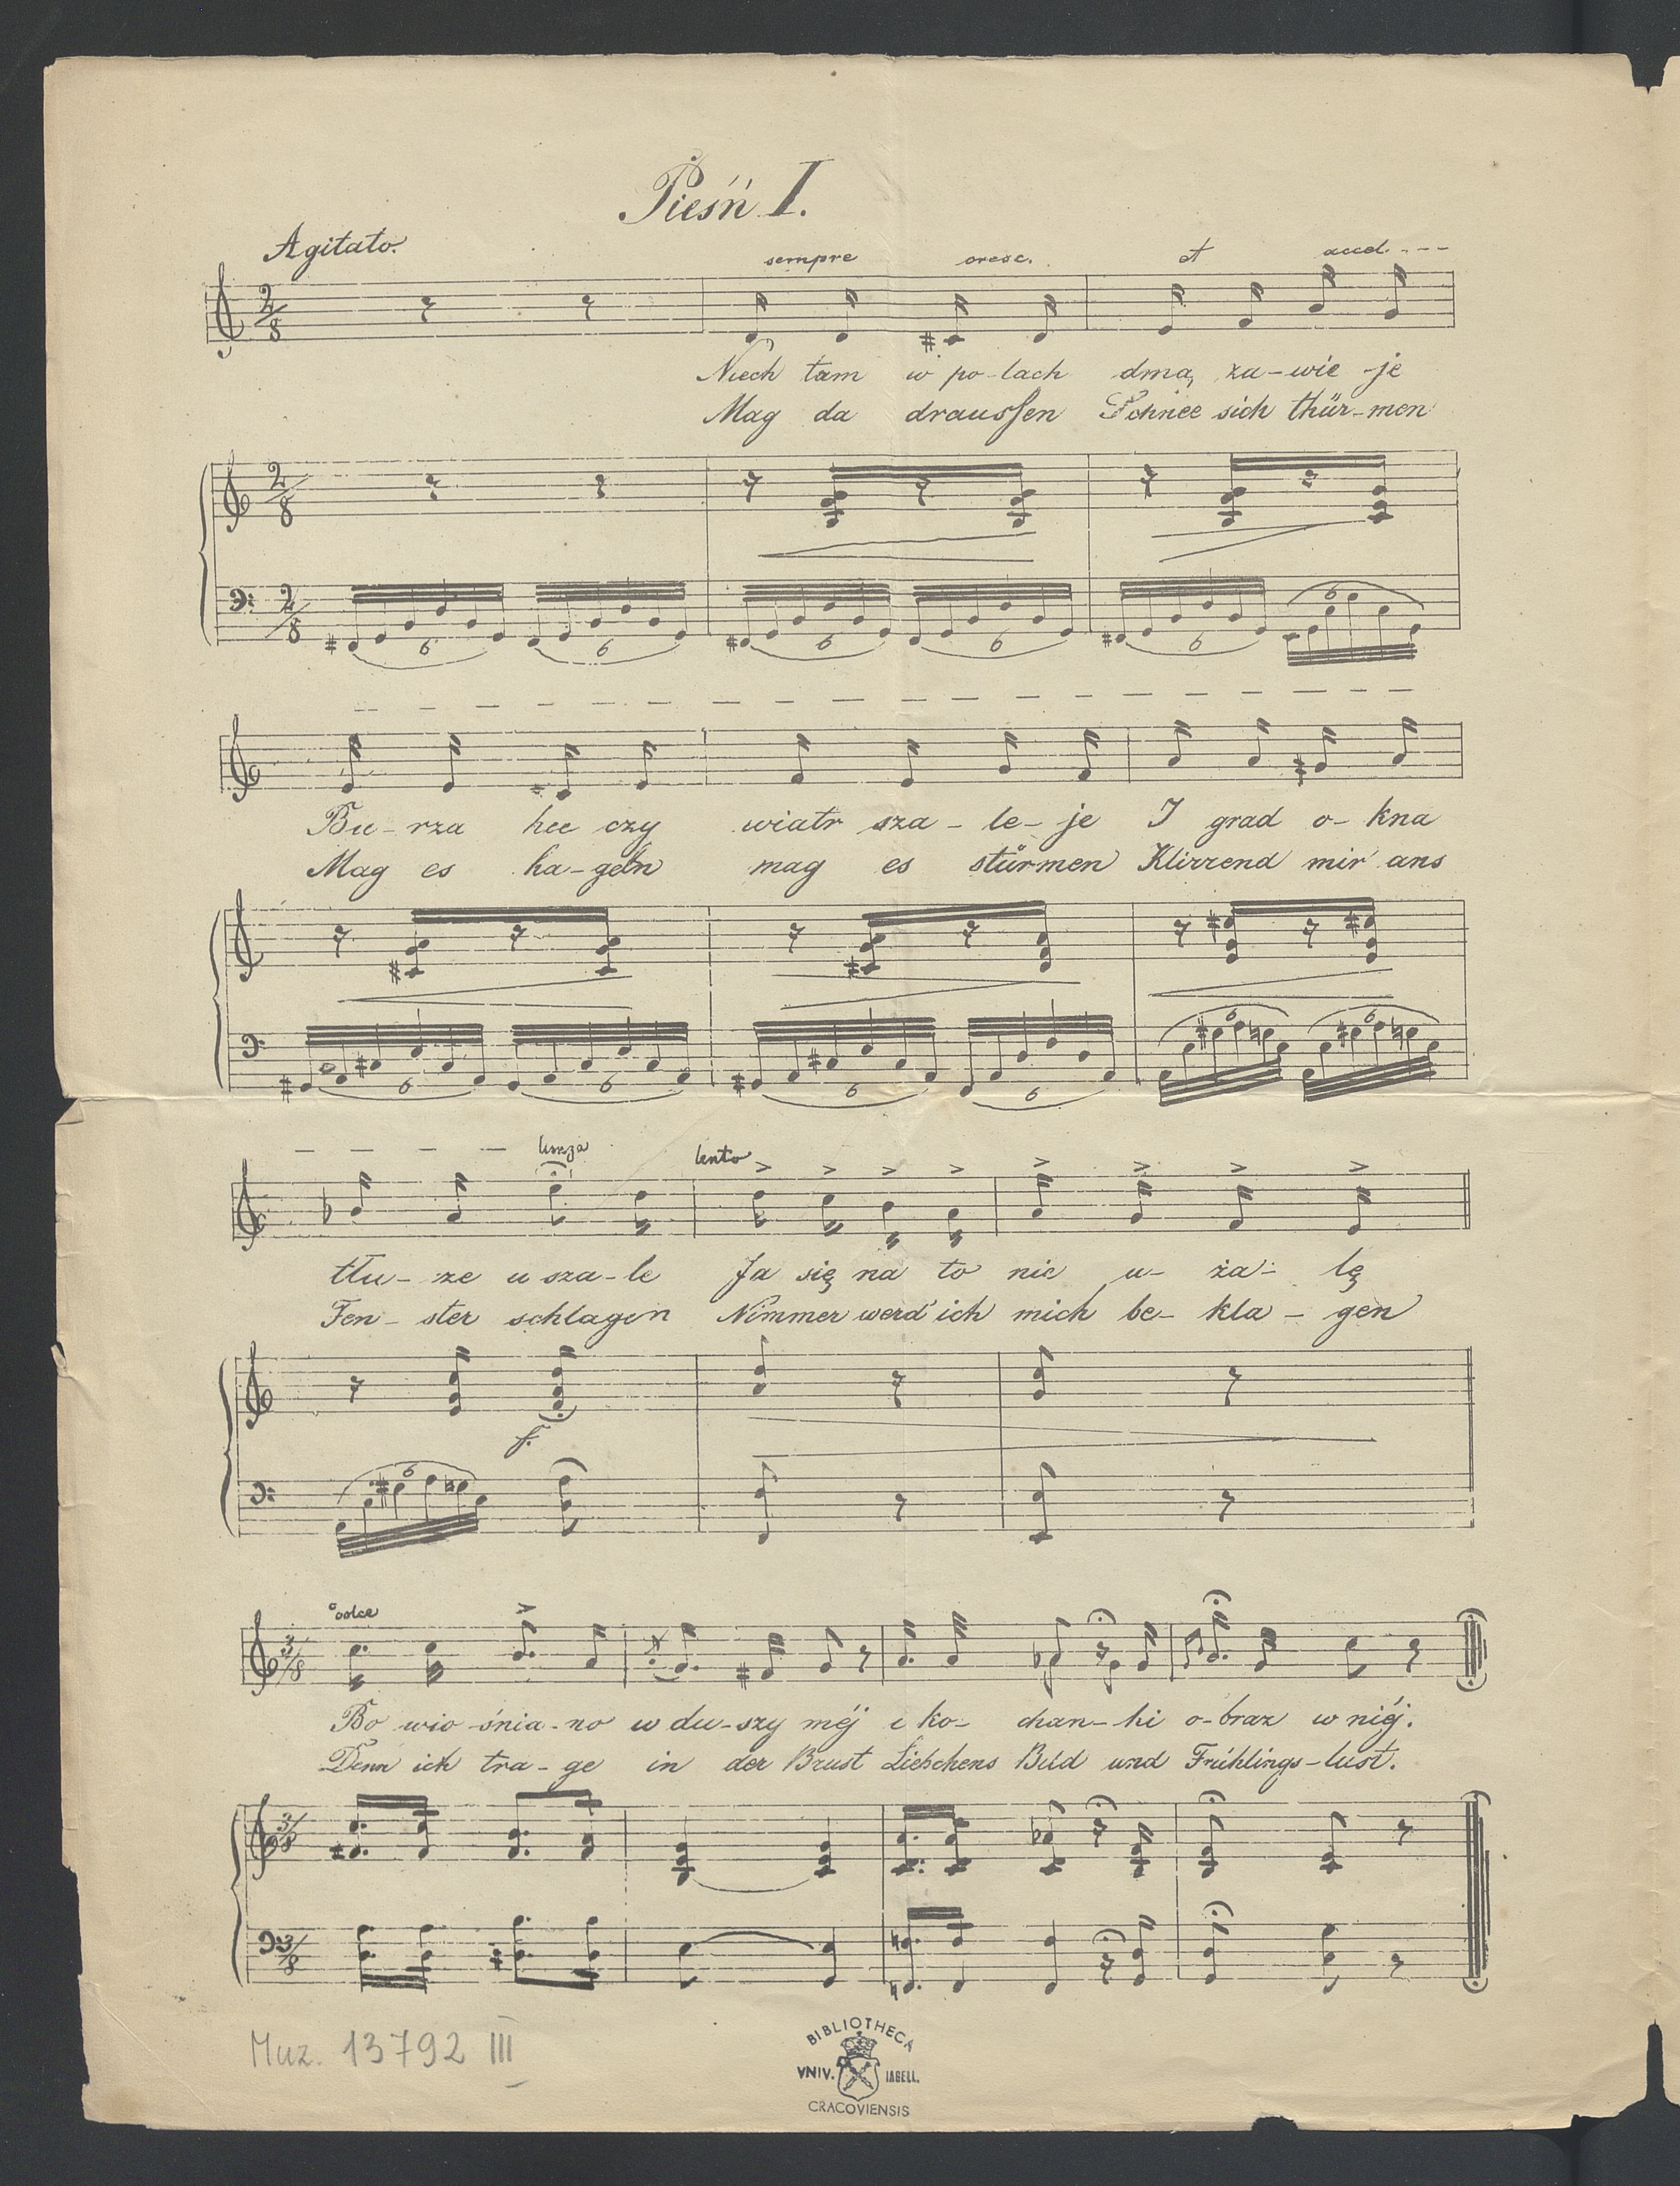 Pieśń I.
Agitato.
sempre cresc. et accel. - - -
2/8
Niech tam w po-lach dmą za-wie-je
Mag da draussen Schnee sich thür-men
2/8
2/8
6 6 6 6 6 6
Bu-rza huczy wiatr sza-le-je I grad o-kna
Mag es ha-geln mag es stürmen Klirrend mir ans
6 6 6 6 6 6
lunga lento
tłu-cze u sza-le Ja się na to nie u-ża-lę
Fen-ster schlagen Nimmer werd' ich mich be-kla-gen
f.
6
dolce
3/8
Bo wio-śnia-no w du-szy méj i ko-chan-ki o-braz w niéj.
Denn ich tra-ge in der Brust Liebchens Bild und Frühlings-lust.
3/8
3/8
Muz. 13792 III
BIBLIOTHECA
VNIV. IAGELL.
CRACOVIENSIS